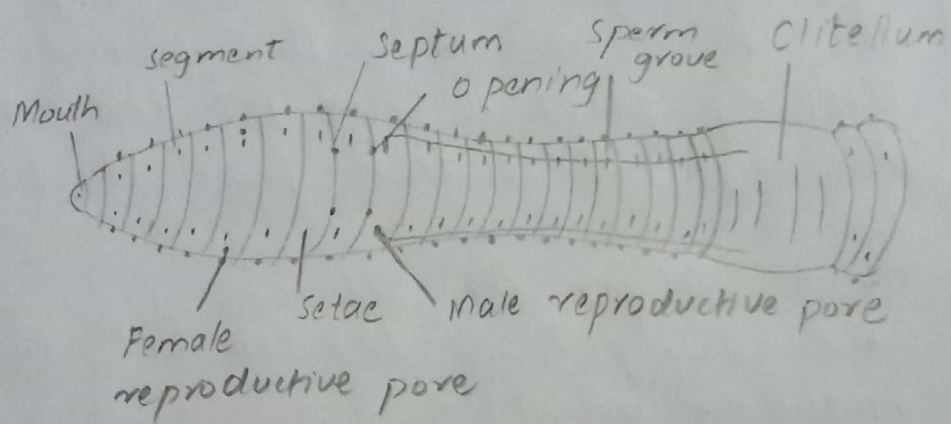 Mouth
segment
Septum
opening
Sperm
grove
Clitellum
Female
reproductive pore
Setae
Male reproductive pore